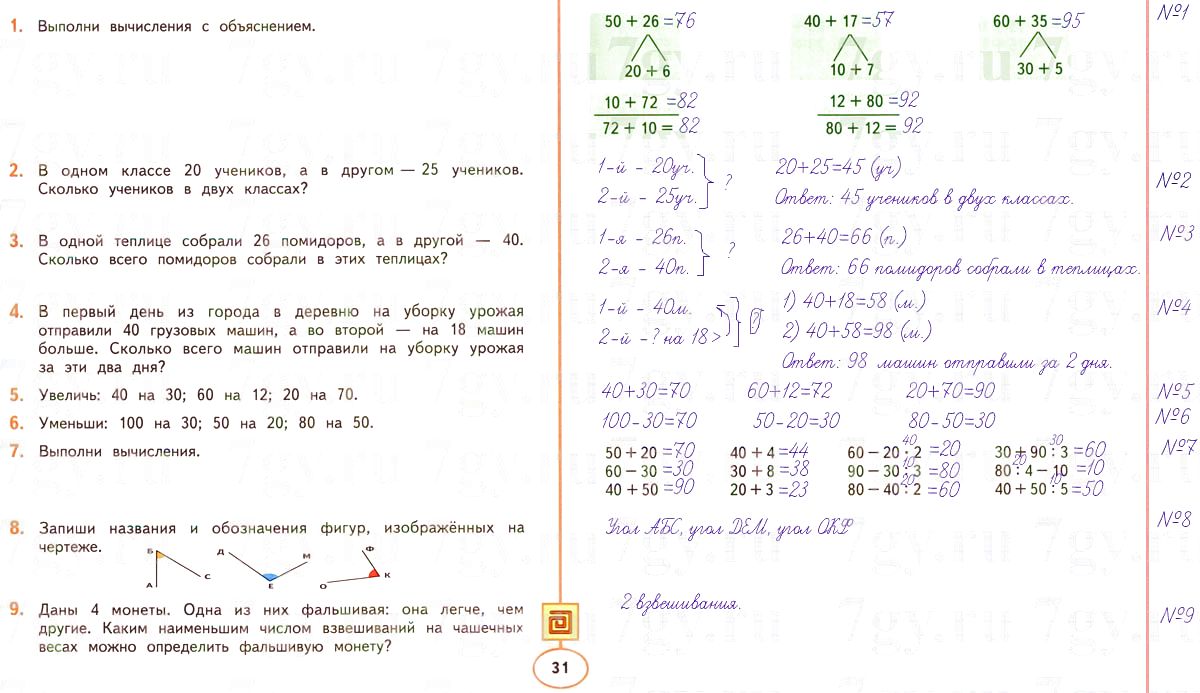 1. Выполни вычисления с объяснением.
50 + 26 =76 40 + 17 =57 60 + 35 =95 №1
20 + 6 10 + 7 30 + 5
10 + 72 =82 12 + 80 =92
72 + 10 = 82 80 + 12 = 92
2. В одном классе 20 учеников, а в другом — 25 учеников.
Сколько учеников в двух классах?
1-й - 20уч. ? 20+25=45 (уч) №2
2-й - 25уч. Ответ: 45 учеников в двух классах.
3. В одной теплице собрали 26 помидоров, а в другой — 40.
Сколько всего помидоров собрали в этих теплицах?
1-я - 26п. ? 26+40=66 (п.) №3
2-я - 40п. Ответ: 66 помидоров собрали в теплицах.
4. В первый день из города в деревню на уборку урожая
отправили 40 грузовых машин, а во второй — на 18 машин
больше. Сколько всего машин отправили на уборку урожая
за эти два дня?
1-й - 40м. ? 1) 40+18=58 (м.) №4
2-й -? на 18> 2) 40+58=98 (м.)
Ответ: 98 машин отправили за 2 дня.
5. Увеличь: 40 на 30; 60 на 12; 20 на 70.
40+30=70 60+12=72 20+70=90 №5
6. Уменьши: 100 на 30; 50 на 20; 80 на 50.
100-30=70 50-20=30 80-50=30 №6
7. Выполни вычисления.
40 30
50 + 20 =70 40 + 4 =44 60 − 20 : 2 =20 30 + 90 : 3 =60 №7
10 20
60 − 30 =30 30 + 8 =38 90 − 30 : 3 =80 80 : 4 − 10 =10
20 10
40 + 50 =90 20 + 3 =23 80 − 40 : 2 =60 40 + 50 : 5 =50
8. Запиши названия и обозначения фигур, изображённых на
чертеже.
Б Д М Ф
А С Е О К
Угол АБС, угол ДЕМ, угол ОКФ №8
9. Даны 4 монеты. Одна из них фальшивая: она легче, чем
другие. Каким наименьшим числом взвешиваний на чашечных
весах можно определить фальшивую монету?
2 взвешивания. №9
31
7gv.ru